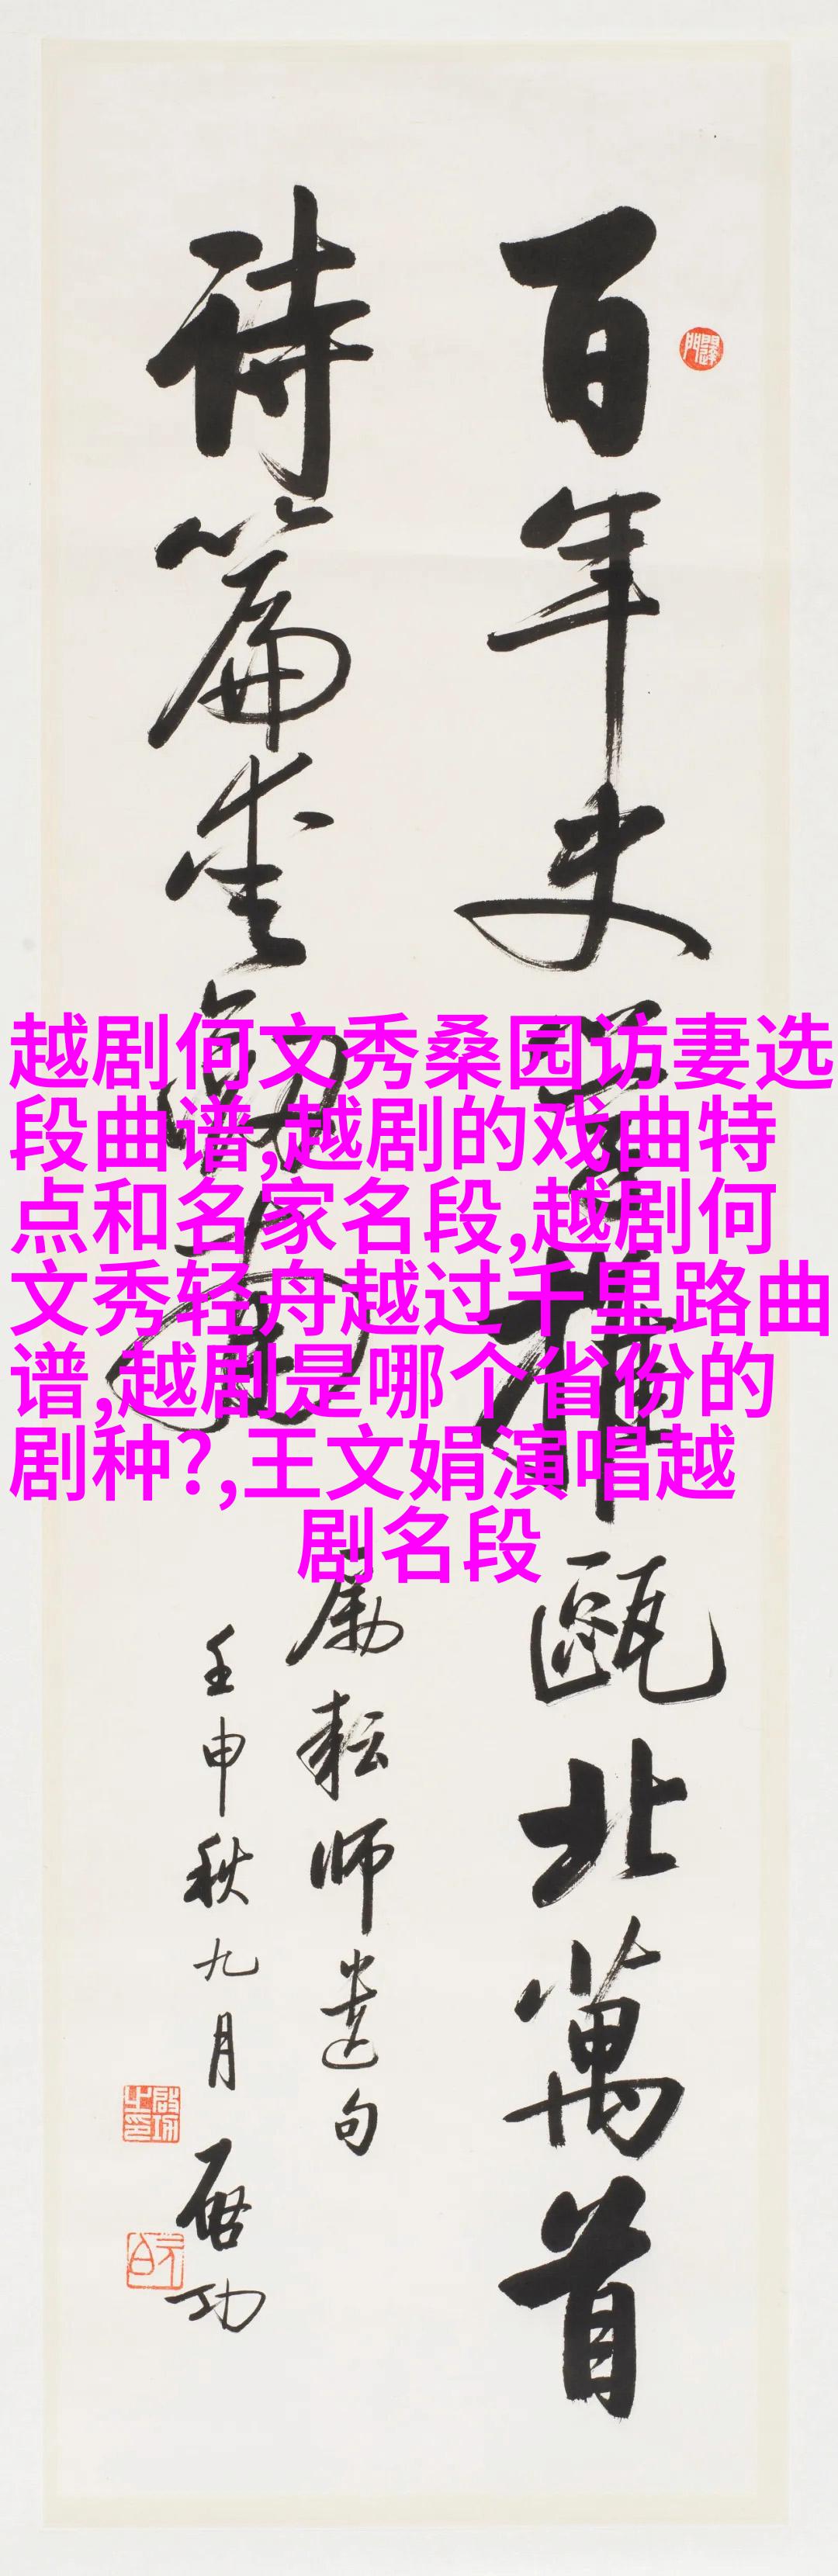 越剧何文秀桑园访妻选
段曲谱,越剧的戏曲特
点和名家名段,越剧何
文秀轻舟越过千里路曲
谱,越剧是哪个省份的
剧种?,王文娟演唱越
剧名段
百年史學推甌北萬首
詩篇愛劍南
励耘师遗句
壬申秋九月
启功